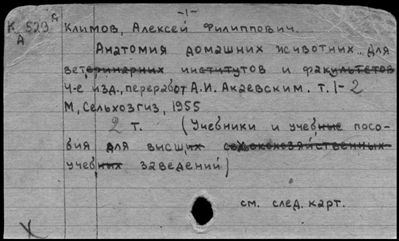 -1-
К 529 Климов, Алексей Филиппович.
А
Анатомия домашних животных... Для
ветеринарных институтов и факультетов
4-е изд., переработ А.И. Акаевским. т. 1-2
М, Сельхозгиз, 1955
2 т. (Учебники и учебные посо-
бия для высших сельскохозяйственных
учебных заведений)
см. след. карт.